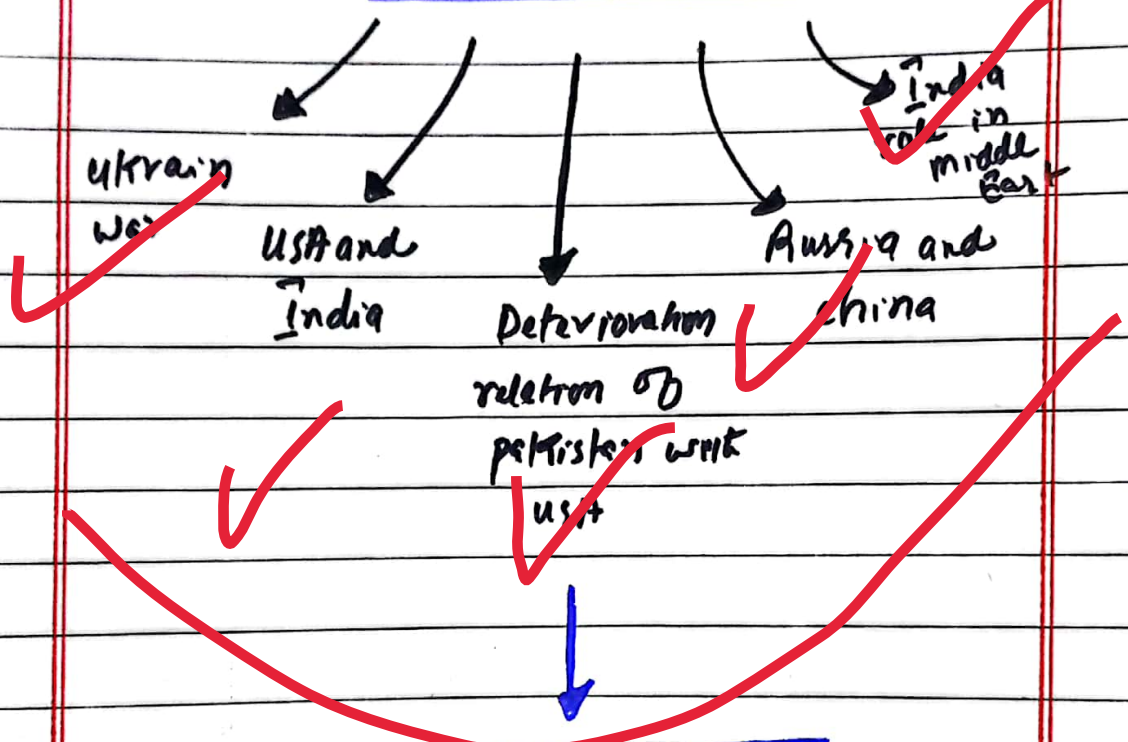 ukrain
war
USA and
India
Deterioration
relation of
pakistan with
USA
Russia and
china
India
role in
middle
East